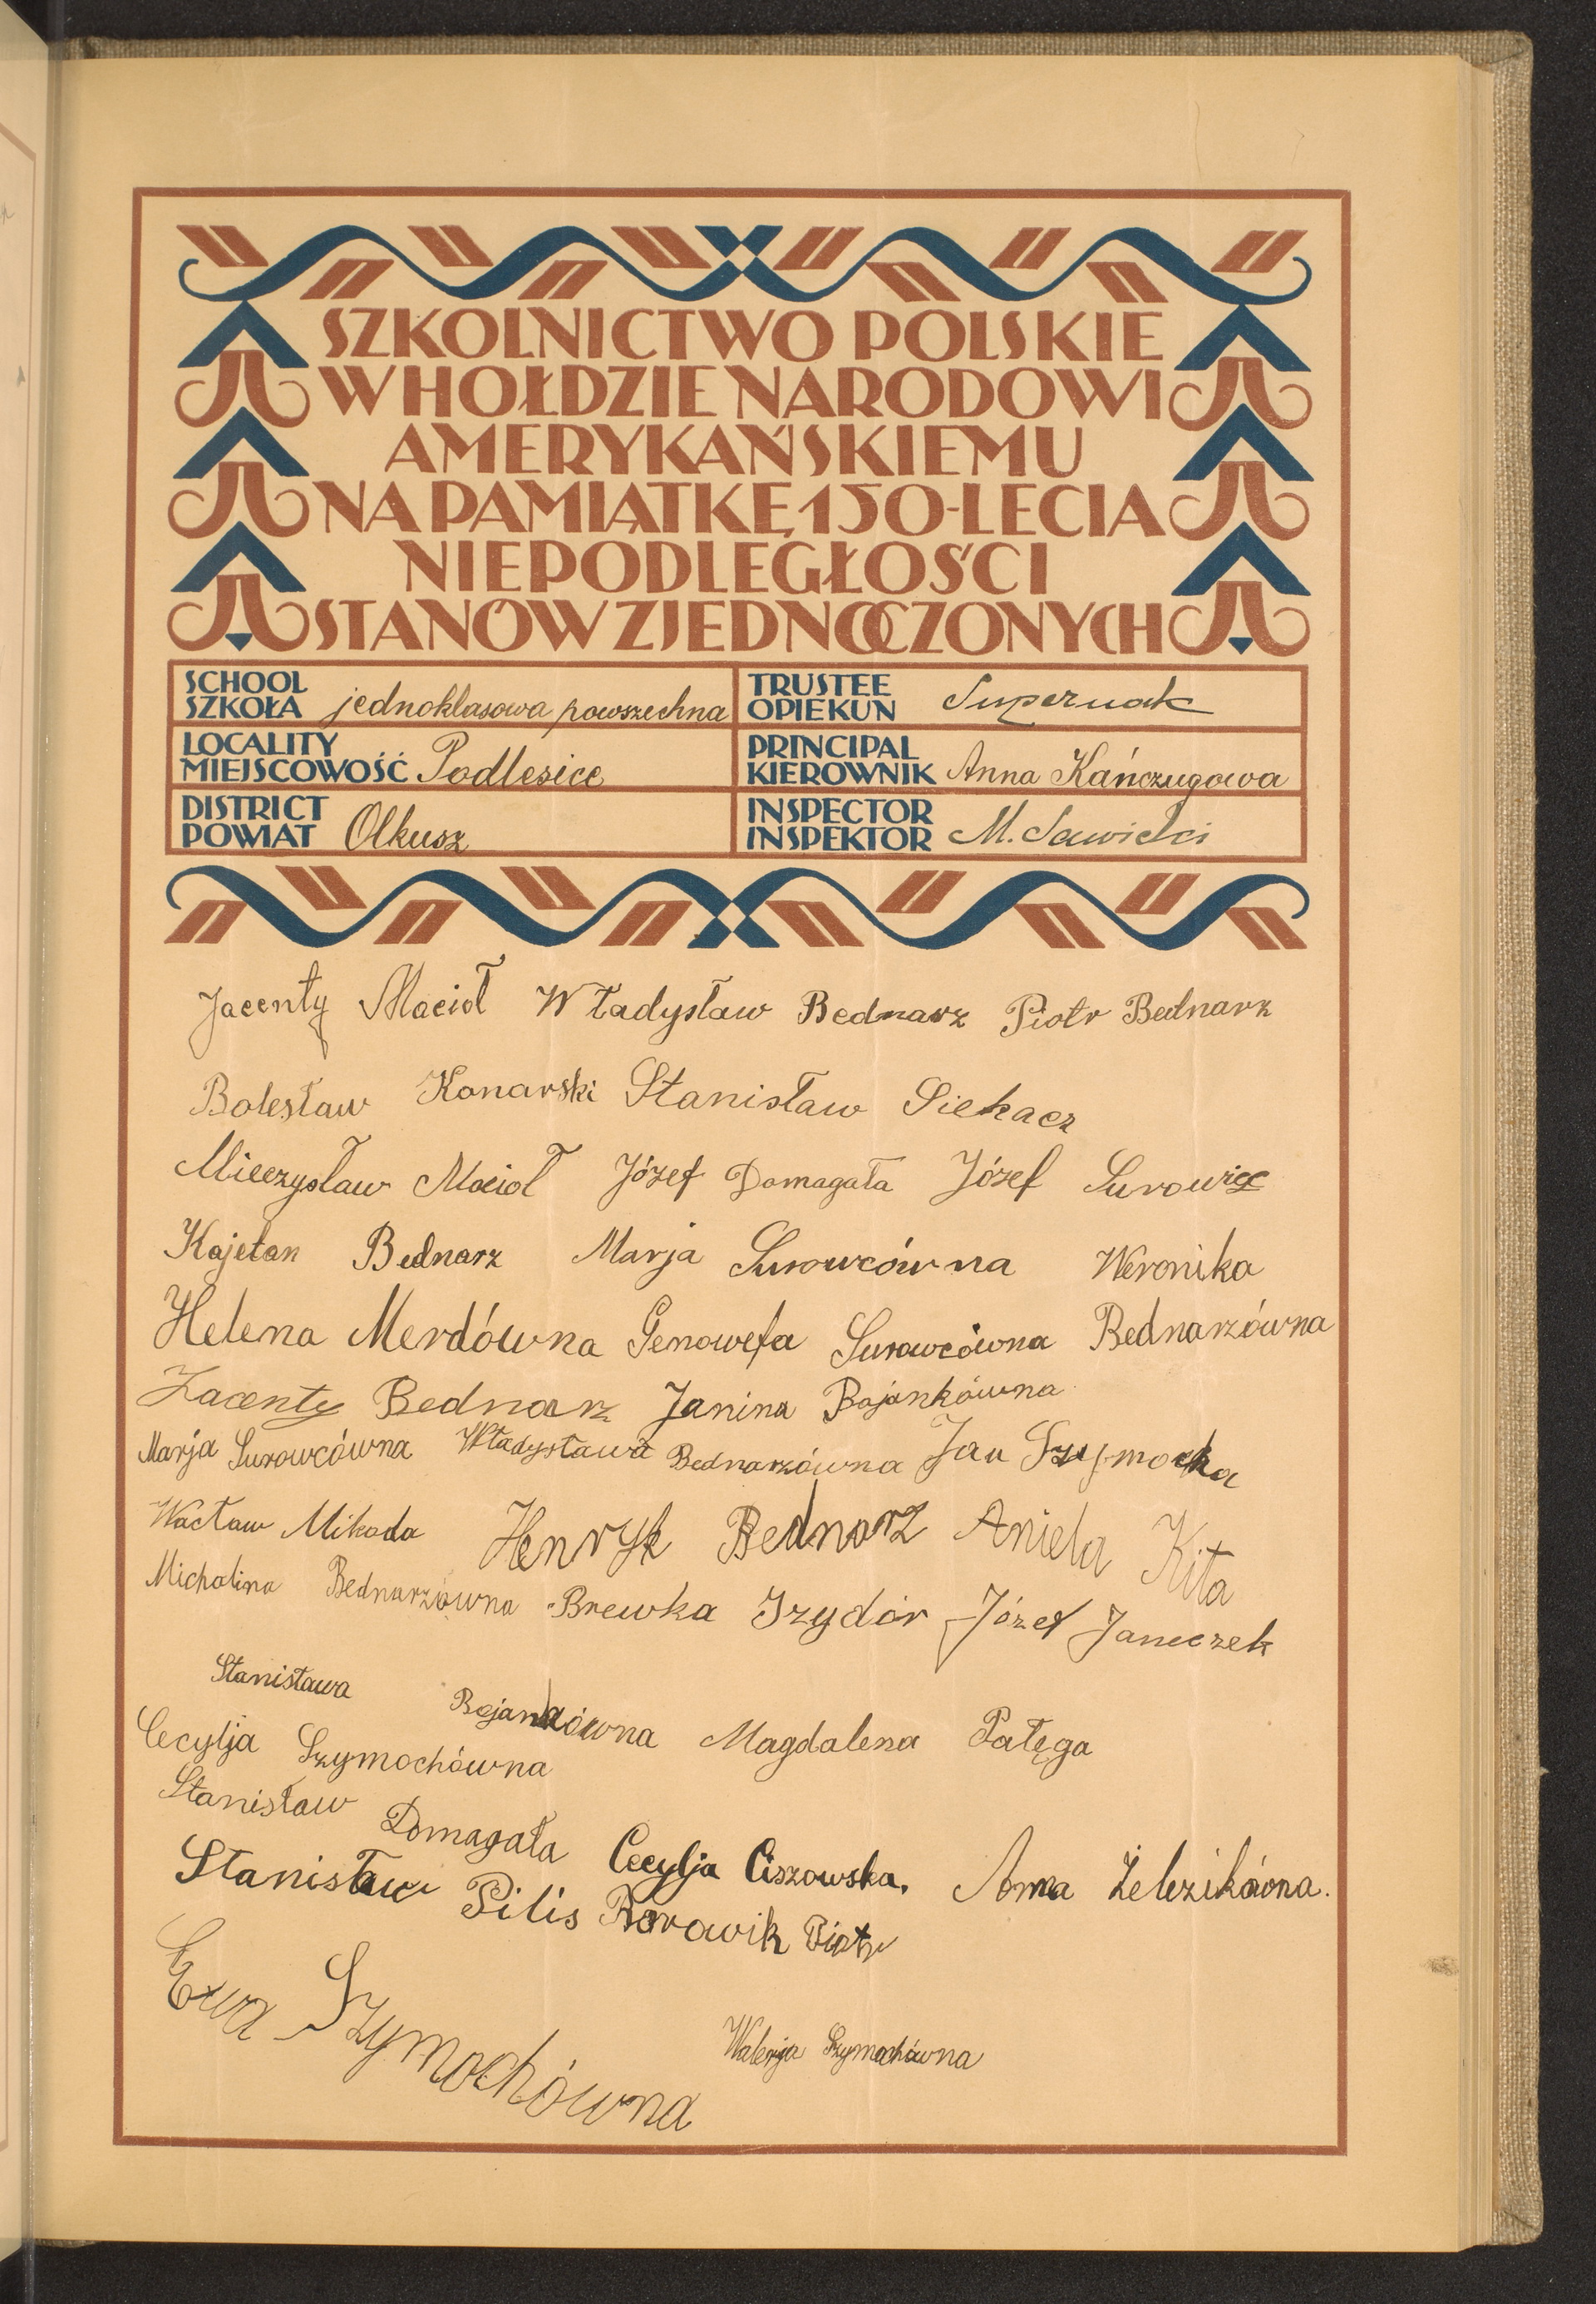 SZKOLNICTWO POLSKIE
W HOŁDZIE NARODOWI
AMERYKAŃSKIEMU
NA PAMIĄTKĘ 150-LECIA
NIEPODLEGŁOŚCI
STANÓW ZJEDNOCZONYCH
SCHOOL
SZKOŁA jednoklasowa powszechna
LOCALITY
MIEJSCOWOŚĆ Podlesice
DISTRICT
POWIAT Olkusz
TRUSTEE
OPIEKUN Supernak
PRINCIPAL
KIEROWNIK Anna Kańczugowa
INSPECTOR
INSPEKTOR M. Sawicki
Jacenty Macioł Władysław Bednarz Piotr Bednarz
Bolesław Konarski Stanisław Siekacz
Mieczysław Macioł Józef Domagała Józef Surowiec
Kajetan Bednarz Marja Surowcówna Weronika
Helena Merdówna Genowefa Surowcówna Bednarzówna
Jacenty Bednarz Janina Bojankówna
Marja Surowcówna Władysława Bednarzówna Jan Szymocha
Wacław Mikoda Henryk Bednarz Aniela Kita
Michalina Bednarzówna Brewka Izydór Józef Janeczek
Stanisława Bojankówna Magdalena Pałęga
Cecylja Szymochówna
Stanisław Domagała Cecylja Ciszowska. Anna Żelezikówna.
Stanisław Pilis Borowik Piotr
Ewa Szymochówna
Walerja Szymochówna